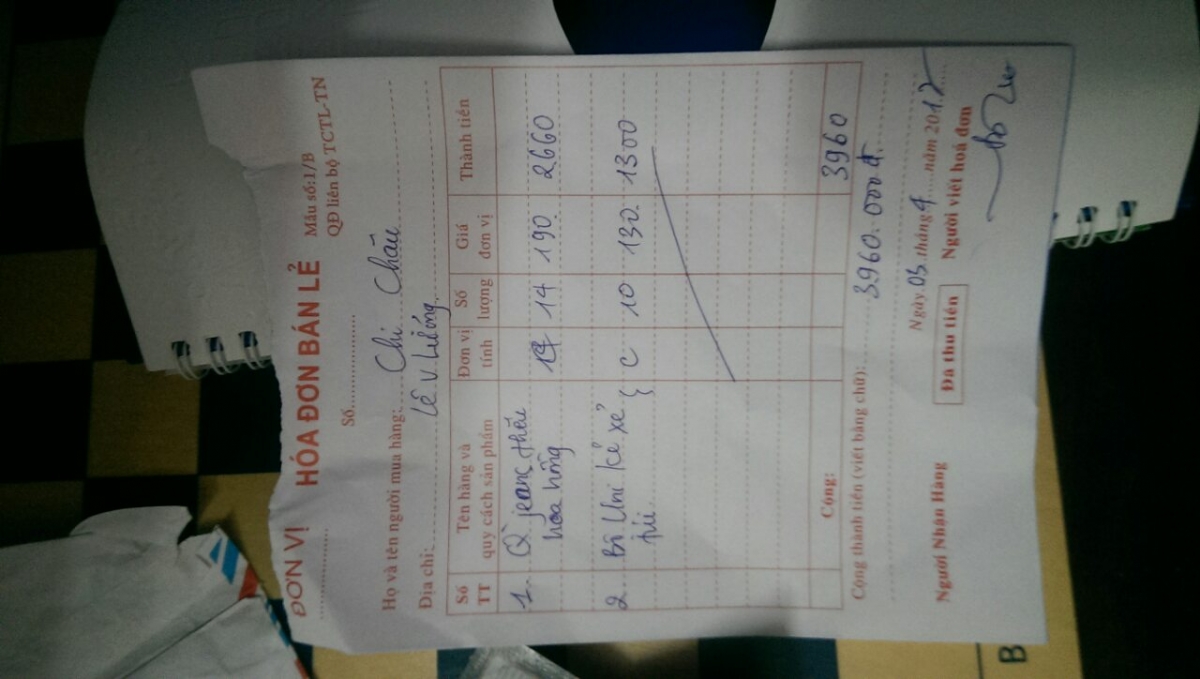 ĐƠN VỊ
HÓA ĐƠN BÁN LẺ
Mẫu số:1/B
QĐ liên bộ TCTL-TN
Số
Họ và tên người mua hàng: Chị Châu
Địa chỉ: Lê V. Lương
Số TT Tên hàng và quy cách sản phẩm Đơn vị tính Số lượng Giá đơn vị Thành tiền
1 Q jeans thêu 14 190 2660
hoa hồng
2 Bì Uni kẻ xẻ C 10 130 1300
Cộng: 3960
Cộng thành tiền (viết bằng chữ): 3960.000đ
Ngày 03 tháng 4 năm 2012
Người Nhận Hàng Đã thu tiền Người viết hoá đơn
B